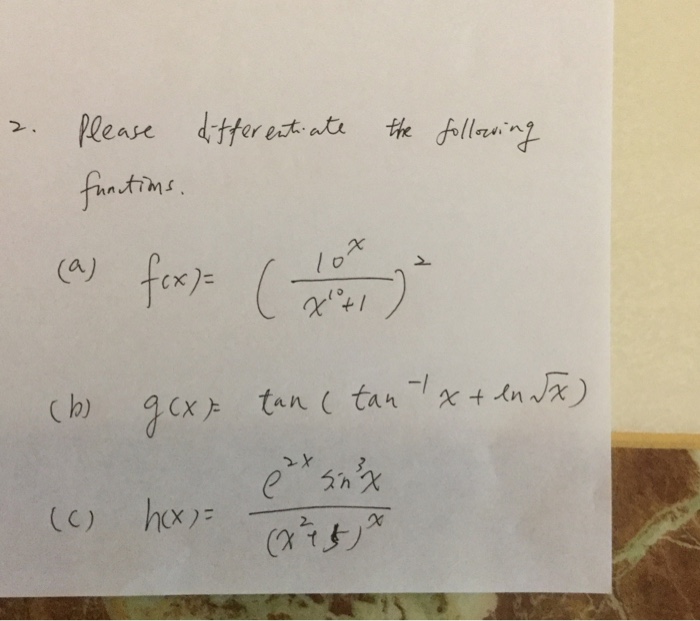 2. Please differentiate the following
functions.
(a) f(x) = (10^x / (x^10 + 1))^2
(b) g(x) = tan ( tan^-1 x + ln √x )
(c) h(x) = e^2x sin^3 x / (x^2 + 5)^x